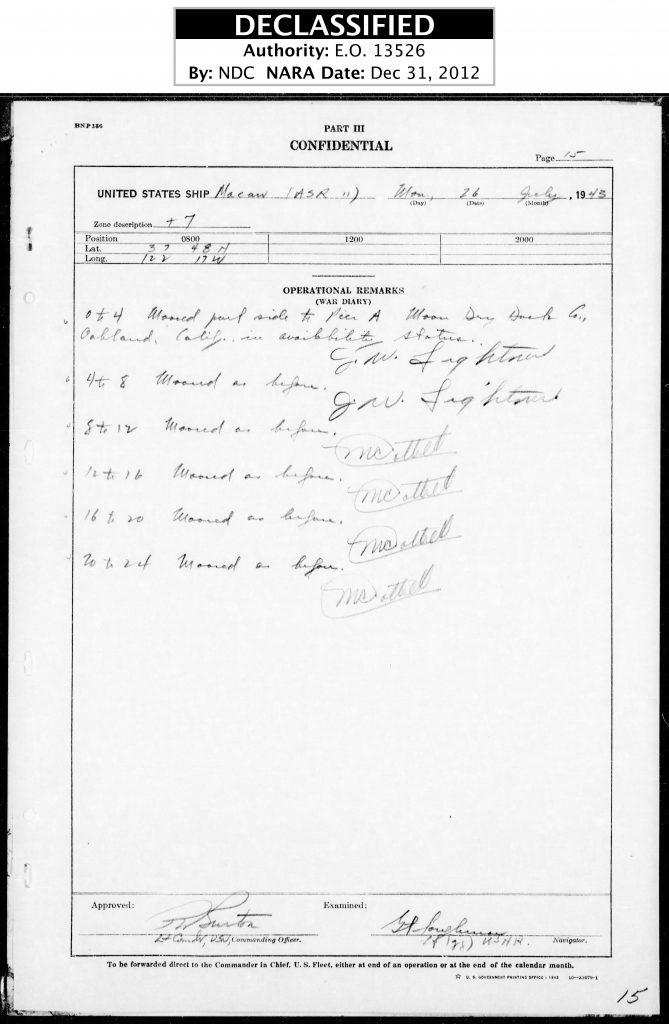 DECLASSIFIED
Authority: E.O. 13526
By: NDC NARA Date: Dec 31, 2012
BNP 386
PART III
CONFIDENTIAL
Page 15
UNITED STATES SHIP Macaw (ASR 11) Mon, 26 July, 1943
(Day) (Date) (Month)
Zone description +7
Position 0800 1200 2000
Lat. 37 48 N
Long. 122 17 W
OPERATIONAL REMARKS
(WAR DIARY)
0 to 4 Moored port side to Pier A Moore Dry Dock Co.,
Oakland, Calif. in availability status.
J.W. Lightner
4 to 8 Moored as before.
J.W. Lightner
8 to 12 Moored as before.
12 to 16 Moored as before.
16 to 20 Moored as before.
20 to 24 Moored as before.
Approved: Examined:
Burton
Lt Comdr, USN, Commanding Officer.
USNR. Navigator.
To be forwarded direct to the Commander in Chief, U. S. Fleet, either at end of an operation or at the end of the calendar month.
☆ U. S. GOVERNMENT PRINTING OFFICE : 1943
15